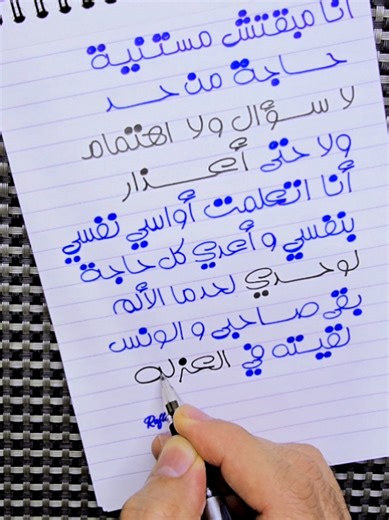 أنا مبقتش مستنية
حاجة من حد
لا سؤال ولا اهتمام
ولا حتى أعذار
أنا اتعلمت أواسي نفسي
بنفسي وأعدي كل حاجة
لوحدي لحدما الألم
بقى صاحبى و الونس
لقيته في العزله